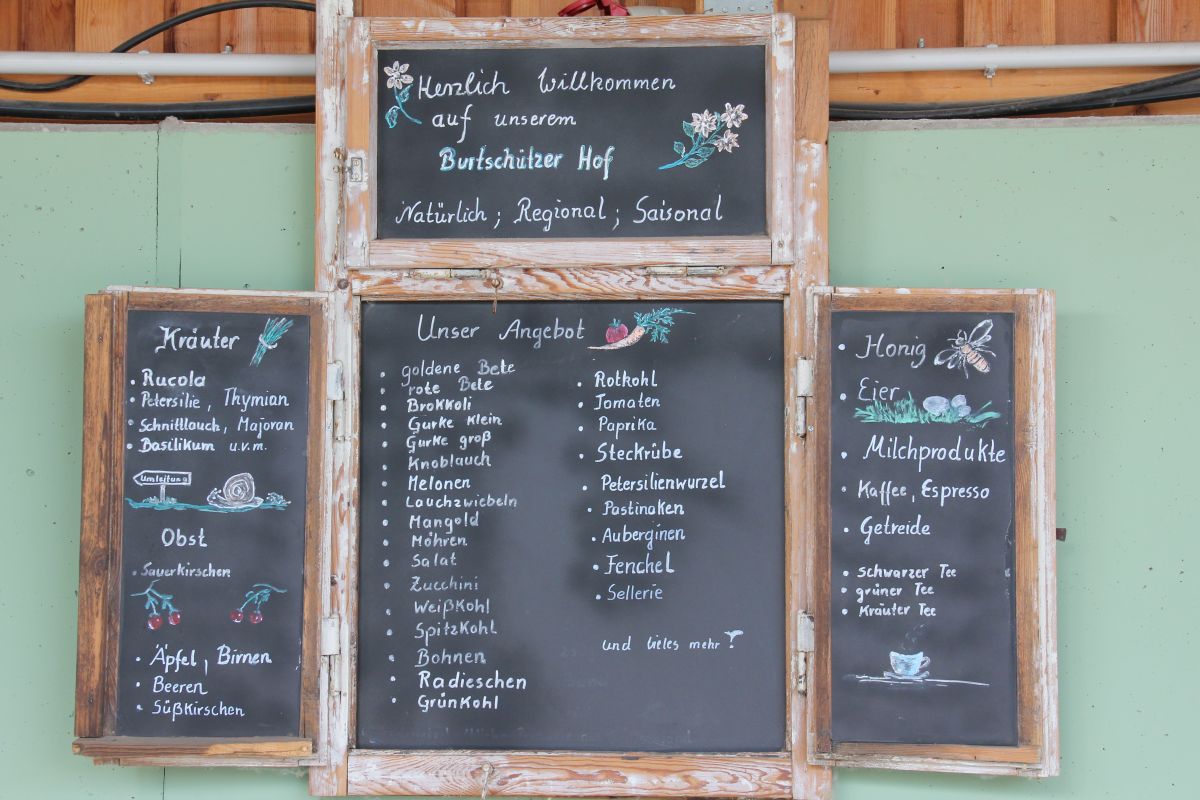 Herzlich Willkommen
auf unserem
Burtschützer Hof
Natürlich ; Regional ; Saisonal
Kräuter
• Rucola
• Petersilie, Thymian
• Schnittlauch, Majoran
• Basilikum u.v.m.
Umleitung
Obst
• Sauerkirschen
• Äpfel, Birnen
• Beeren
• Süßkirschen
Unser Angebot
• goldene Bete
• rote Bete
• Brokkoli
• Gurke klein
• Gurke groß
• Knoblauch
• Melonen
• Lauchzwiebeln
• Mangold
• Möhren
• Salat
• Zucchini
• Weißkohl
• Spitzkohl
• Bohnen
• Radieschen
• Grünkohl
• Rotkohl
• Tomaten
• Paprika
• Steckrübe
• Petersilienwurzel
• Pastinaken
• Auberginen
• Fenchel
• Sellerie
und vieles mehr
• Honig
• Eier
• Milchprodukte
• Kaffee, Espresso
• Getreide
• schwarzer Tee
• grüner Tee
• Kräuter Tee